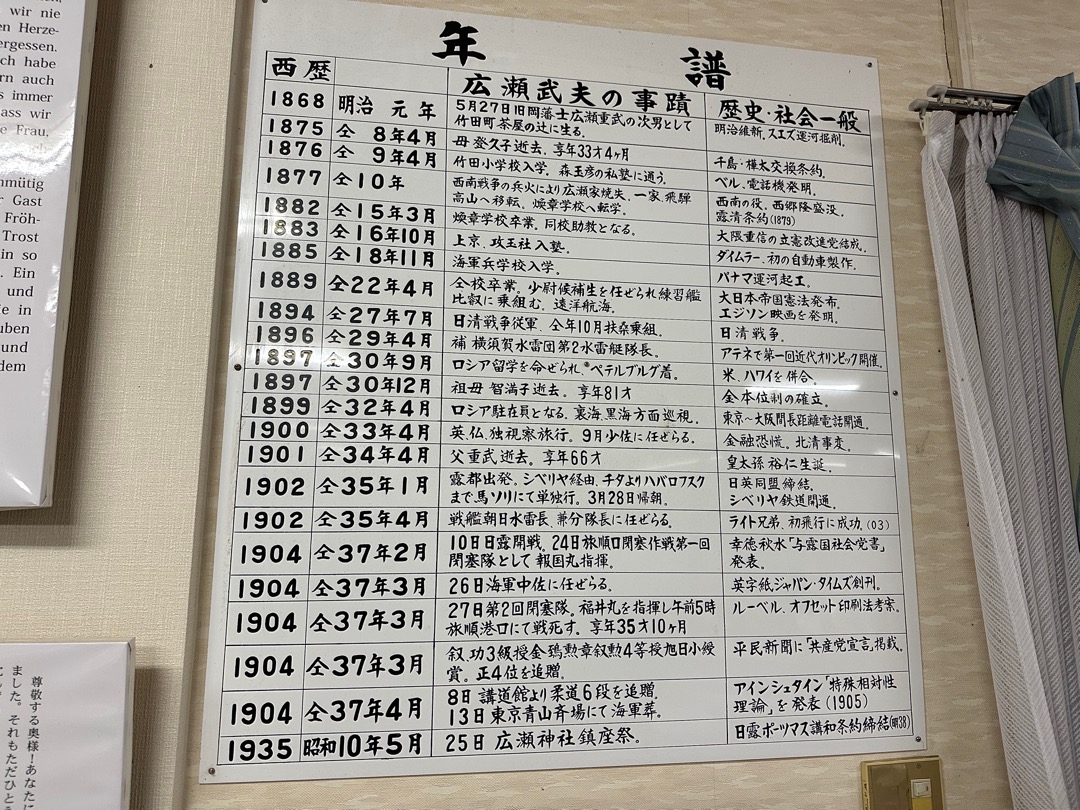 wir nie
en Herze-
ergessen.
ch habe
rn auch
s immer
ass wir
e Frau,
nmütig
r Gast
Fröh-
Trost
in so
. Ein
und
e in
uben
und
dem
年譜
西歴 広瀬武夫の事蹟 歴史・社会一般
1868 明治 元年 5月27日旧岡藩士広瀬重武の次男として
竹田町茶屋の辻に生る. 明治維新.スエズ運河掘削.
1875 仝 8年4月 母 登久子逝去. 享年33才4ヶ月 千島・樺太交換条約.
1876 仝 9年4月 竹田小学校入学. 森玉彦の私塾に通う. ベル.電話機発明.
1877 仝10年 西南戦争の兵火により広瀬家焼失.一家.飛騨
高山へ移転. 煥章学校へ転学. 西南の役.西郷隆盛没.
露清条約(1879)
1882 仝15年3月 煥章学校卒業. 同校助教となる. 大隈重信の立憲改進党結成.
1883 仝16年10月 上京.攻玉社入塾. ダイムラー.初の自動車製作.
1885 仝18年11月 海軍兵学校入学. パナマ運河起工.
1889 仝22年4月 仝校卒業. 少尉候補生を任ぜられ練習艦
比叡に乗組む. 遠洋航海. 大日本帝国憲法発布.
エジソン映画を発明.
1894 仝27年7月 日清戦争従軍.仝年10月扶桑乗組. 日清戦争.
1896 仝29年4月 補 横須賀水雷団第2水雷艇隊長. アテネで第一回近代オリンピック開催.
1897 仝30年9月 ロシア留学を命ぜられ.ペテルブルグ着. 米.ハワイを併合.
1897 仝30年12月 祖母 智満子逝去. 享年81才 金本位制の確立.
1899 仝32年4月 ロシア駐在員となる.裏海.黒海方面巡視. 東京~大阪間長距離電話開通.
1900 仝33年4月 英.仏.独視察旅行. 9月少佐に任ぜらる. 金融恐慌. 北清事変.
1901 仝34年4月 父重武逝去. 享年66才 皇太孫裕仁生誕.
1902 仝35年1月 露都出発.シベリヤ経由.チタよりハバロフスク
まで馬ソリにて単独行. 3月28日帰朝. 日英同盟締結.
シベリヤ鉄道開通.
1902 仝35年4月 戦艦朝日水雷長.兼分隊長に任ぜらる. ライト兄弟.初飛行に成功.(03)
1904 仝37年2月 10日日露開戦. 24日旅順口閉塞作戦第一回
閉塞隊として報国丸指揮. 幸徳秋水「与露国社会党書」
発表.
1904 仝37年3月 26日海軍中佐に任ぜらる. 英字紙ジャパン・タイムズ創刊.
1904 仝37年3月 27日第2回閉塞隊. 福井丸を指揮し午前5時
旅順港口にて戦死す. 享年35才10ヶ月 ルーベル.オフセット印刷法考案.
1904 仝37年3月 叙.功3級授金鵄勲章叙勲4等授旭日小綬
賞. 正4位を追贈. 平民新聞に「共産党宣言」掲載.
1904 仝37年4月 8日 講道館より柔道6段を追贈.
13日 東京青山斉場にて海軍葬. アインシュタイン「特殊相対性
理論」を発表(1905)
1935 昭和10年5月 25日 広瀬神社鎮座祭. 日露ポーツマス講和条約締結(明38)
尊敬する奥様!あなたに
ました。それもただひとう